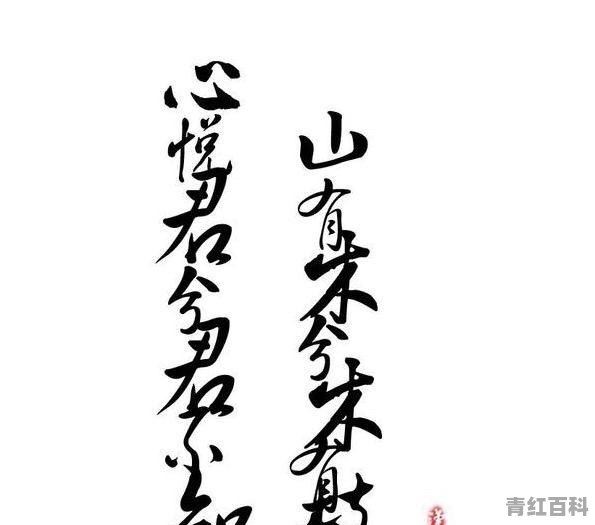 山有朱兮朱有
心悦君兮君不知
青红百科